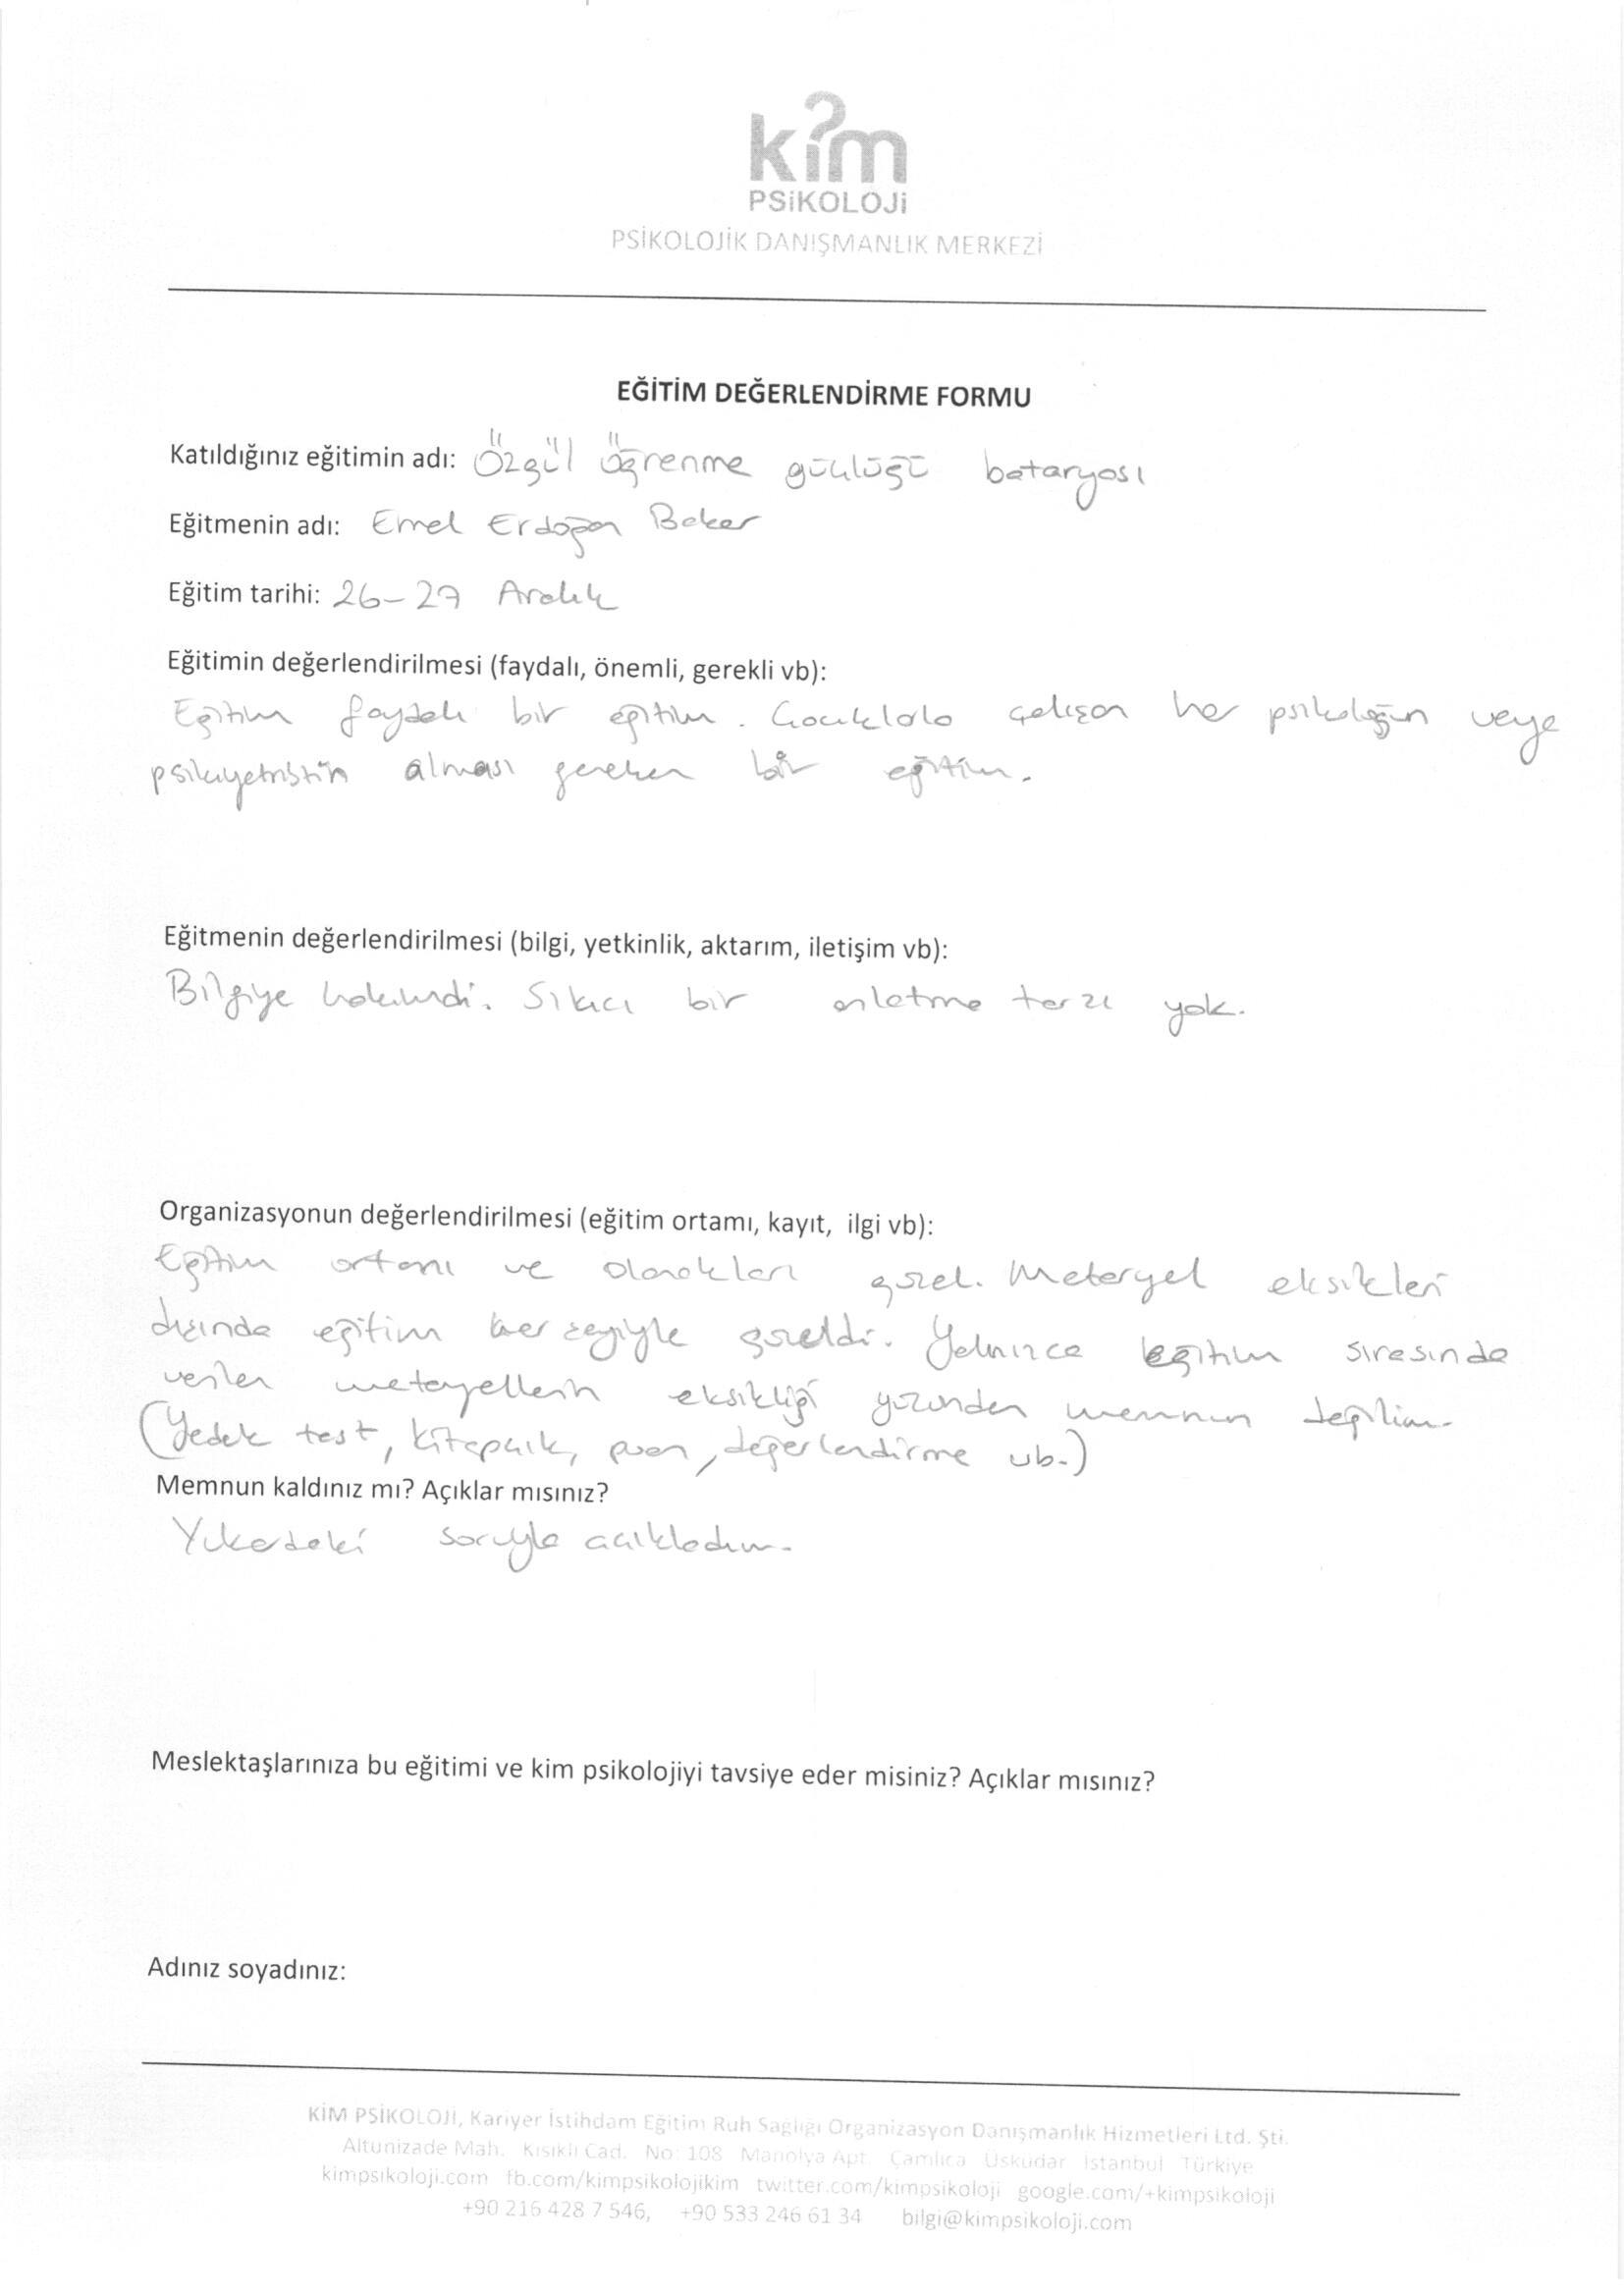 kim
PSİKOLOJİ
PSİKOLOJİK DANIŞMANLIK MERKEZİ
EĞİTİM DEĞERLENDİRME FORMU
Katıldığınız eğitimin adı: Özgül öğrenme güçlüğü bataryası
Eğitmenin adı: Emel Erdoğan Baker
Eğitim tarihi: 26-27 Aralık
Eğitimin değerlendirilmesi (faydalı, önemli, gerekli vb):
Eğitim faydalı bir eğitim. Çocuklarla çalışan her psikoloğun veya
psikiyatristin alması gereken bir eğitim.
Eğitmenin değerlendirilmesi (bilgi, yetkinlik, aktarım, iletişim vb):
Bilgiye hakimdi. Sıkıcı bir anlatma tarzı yok.
Organizasyonun değerlendirilmesi (eğitim ortamı, kayıt, ilgi vb):
Eğitim ortamı ve olanakları güzel. Materyal eksikleri
dışında eğitim her şeyiyle güzeldi. Yalnızca eğitim sırasında
verilen materyallerin eksikliği yüzünden memnun değilim.
(Yedek test, kitapçık, puan, değerlendirme vb.)
Memnun kaldınız mı? Açıklar mısınız?
Yukardaki soruyla açıkladım.
Meslektaşlarınıza bu eğitimi ve kim psikolojiyi tavsiye eder misiniz? Açıklar mısınız?
Adınız soyadınız:
KİM PSİKOLOJİ, Kariyer İstihdam Eğitim Ruh Sağlığı Organizasyon Danışmanlık Hizmetleri Ltd. Şti.
Altunizade Mah. Kısıklı Cad. No: 108 Manolya Apt. Çamlıca Üsküdar İstanbul Türkiye
kimpsikoloji.com fb.com/kimpsikolojikim twitter.com/kimpsikoloji google.com/+kimpsikoloji
+90 216 428 7 546, +90 533 246 61 34 bilgi@kimpsikoloji.com